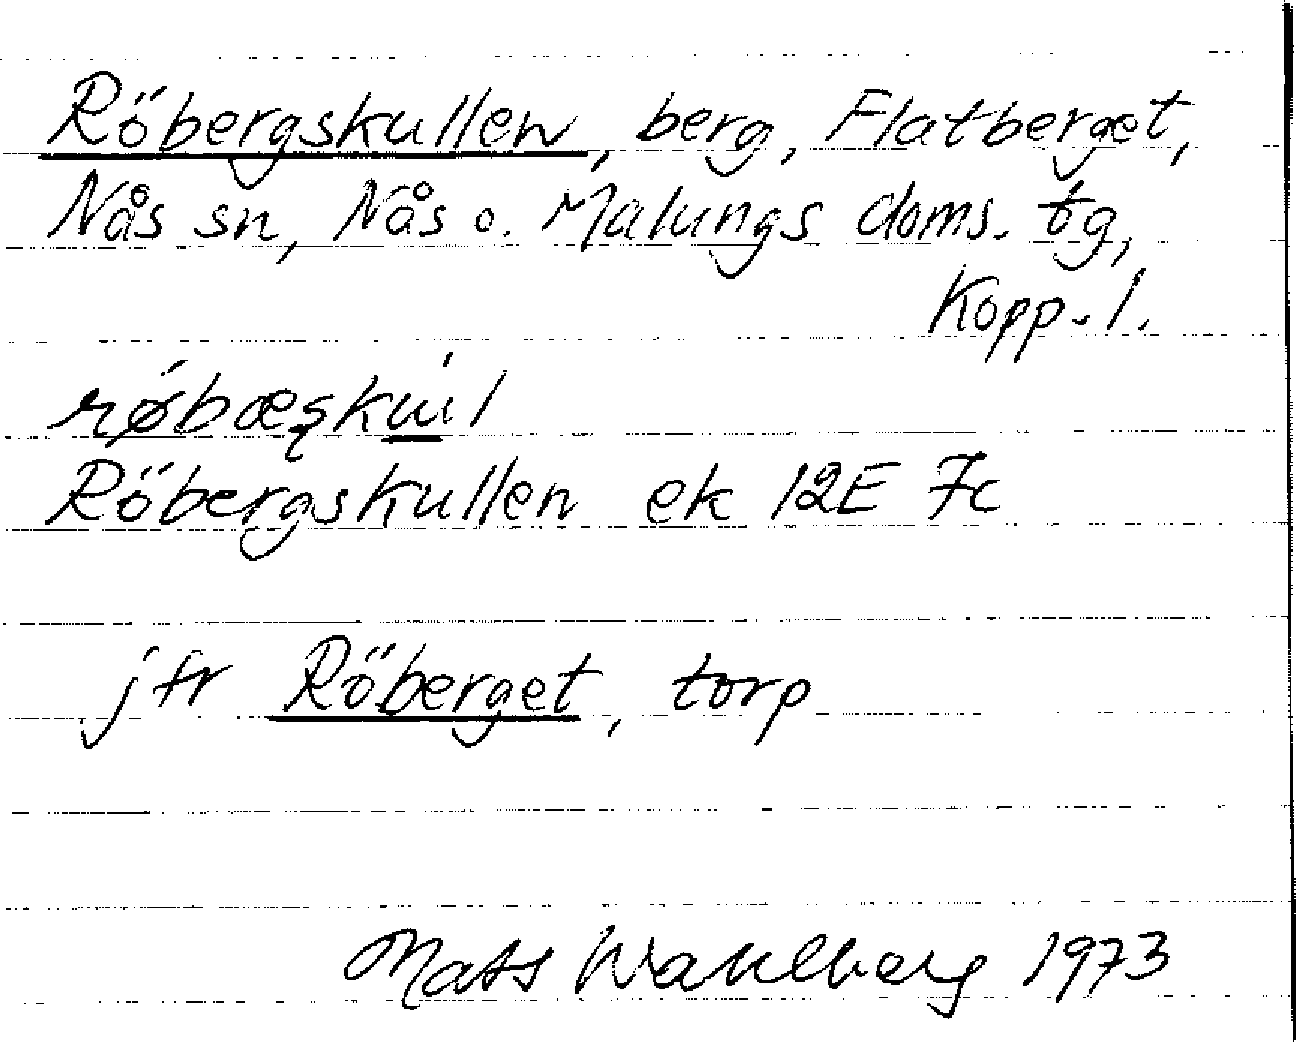 Röbergskullen, berg, Flatberget,
Nås sn, Nås o. Malungs doms. tg,
Kopp. l.
Röbergskullen ek 12E 7c
jfr Röberget, torp
Mats Wahlberg 1973